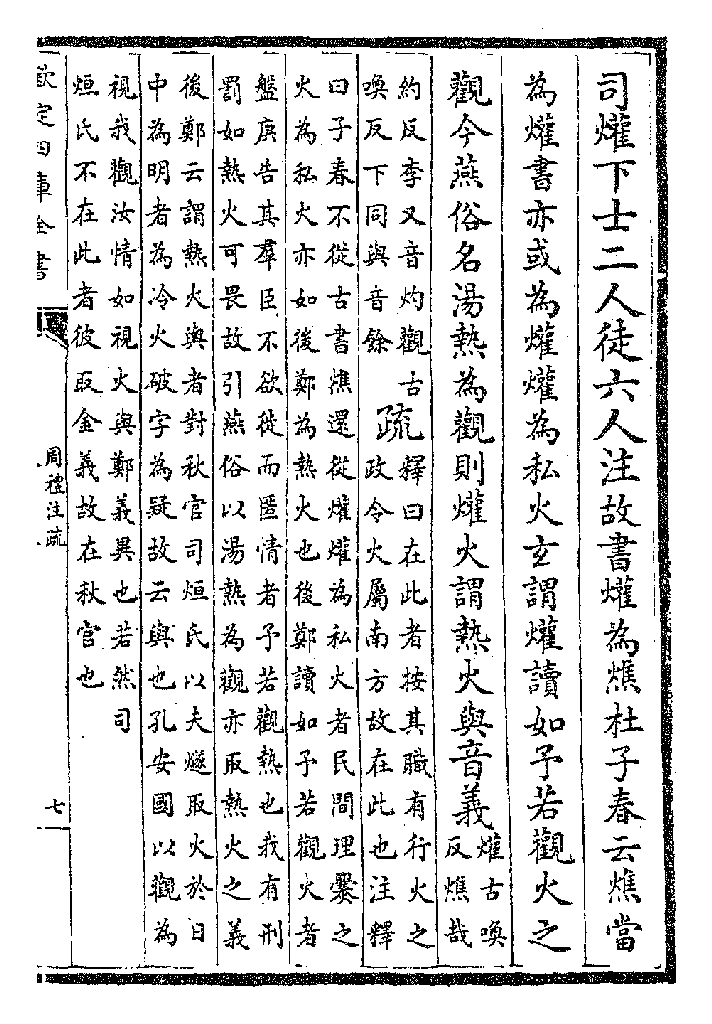 司爟下士二人徒六人注故書爟為燋杜子春云燋當
為爟書亦或為爟爟為私火玄謂爟讀如予若觀火之
觀今燕俗名湯熱為觀則爟火謂熱火與音義
爟古喚
反燋哉
約反李又音灼觀古
喚反下同與音餘
疏
釋曰在此者按其職有行火之
政令火屬南方故在此也注釋
曰子春不從古書燋還從爟爟為私火者民間理爨之
火為私火亦如後鄭為熱火也後鄭讀如予若觀火者
盤庚告其羣臣不欲徙而匿情者予若觀熱也我有刑
罰如熱火可畏故引燕俗以湯熱為觀亦取熱火之義
後鄭云謂熱火與者對秋官司烜氏以夫燧取火於日
中為明者為冷火破字為疑故云與也孔安國以觀為
視我觀汝情如視火與鄭義異也若然司
烜氏不在此者彼取金義故在秋官也
欽定四庫全書
周禮注疏
七